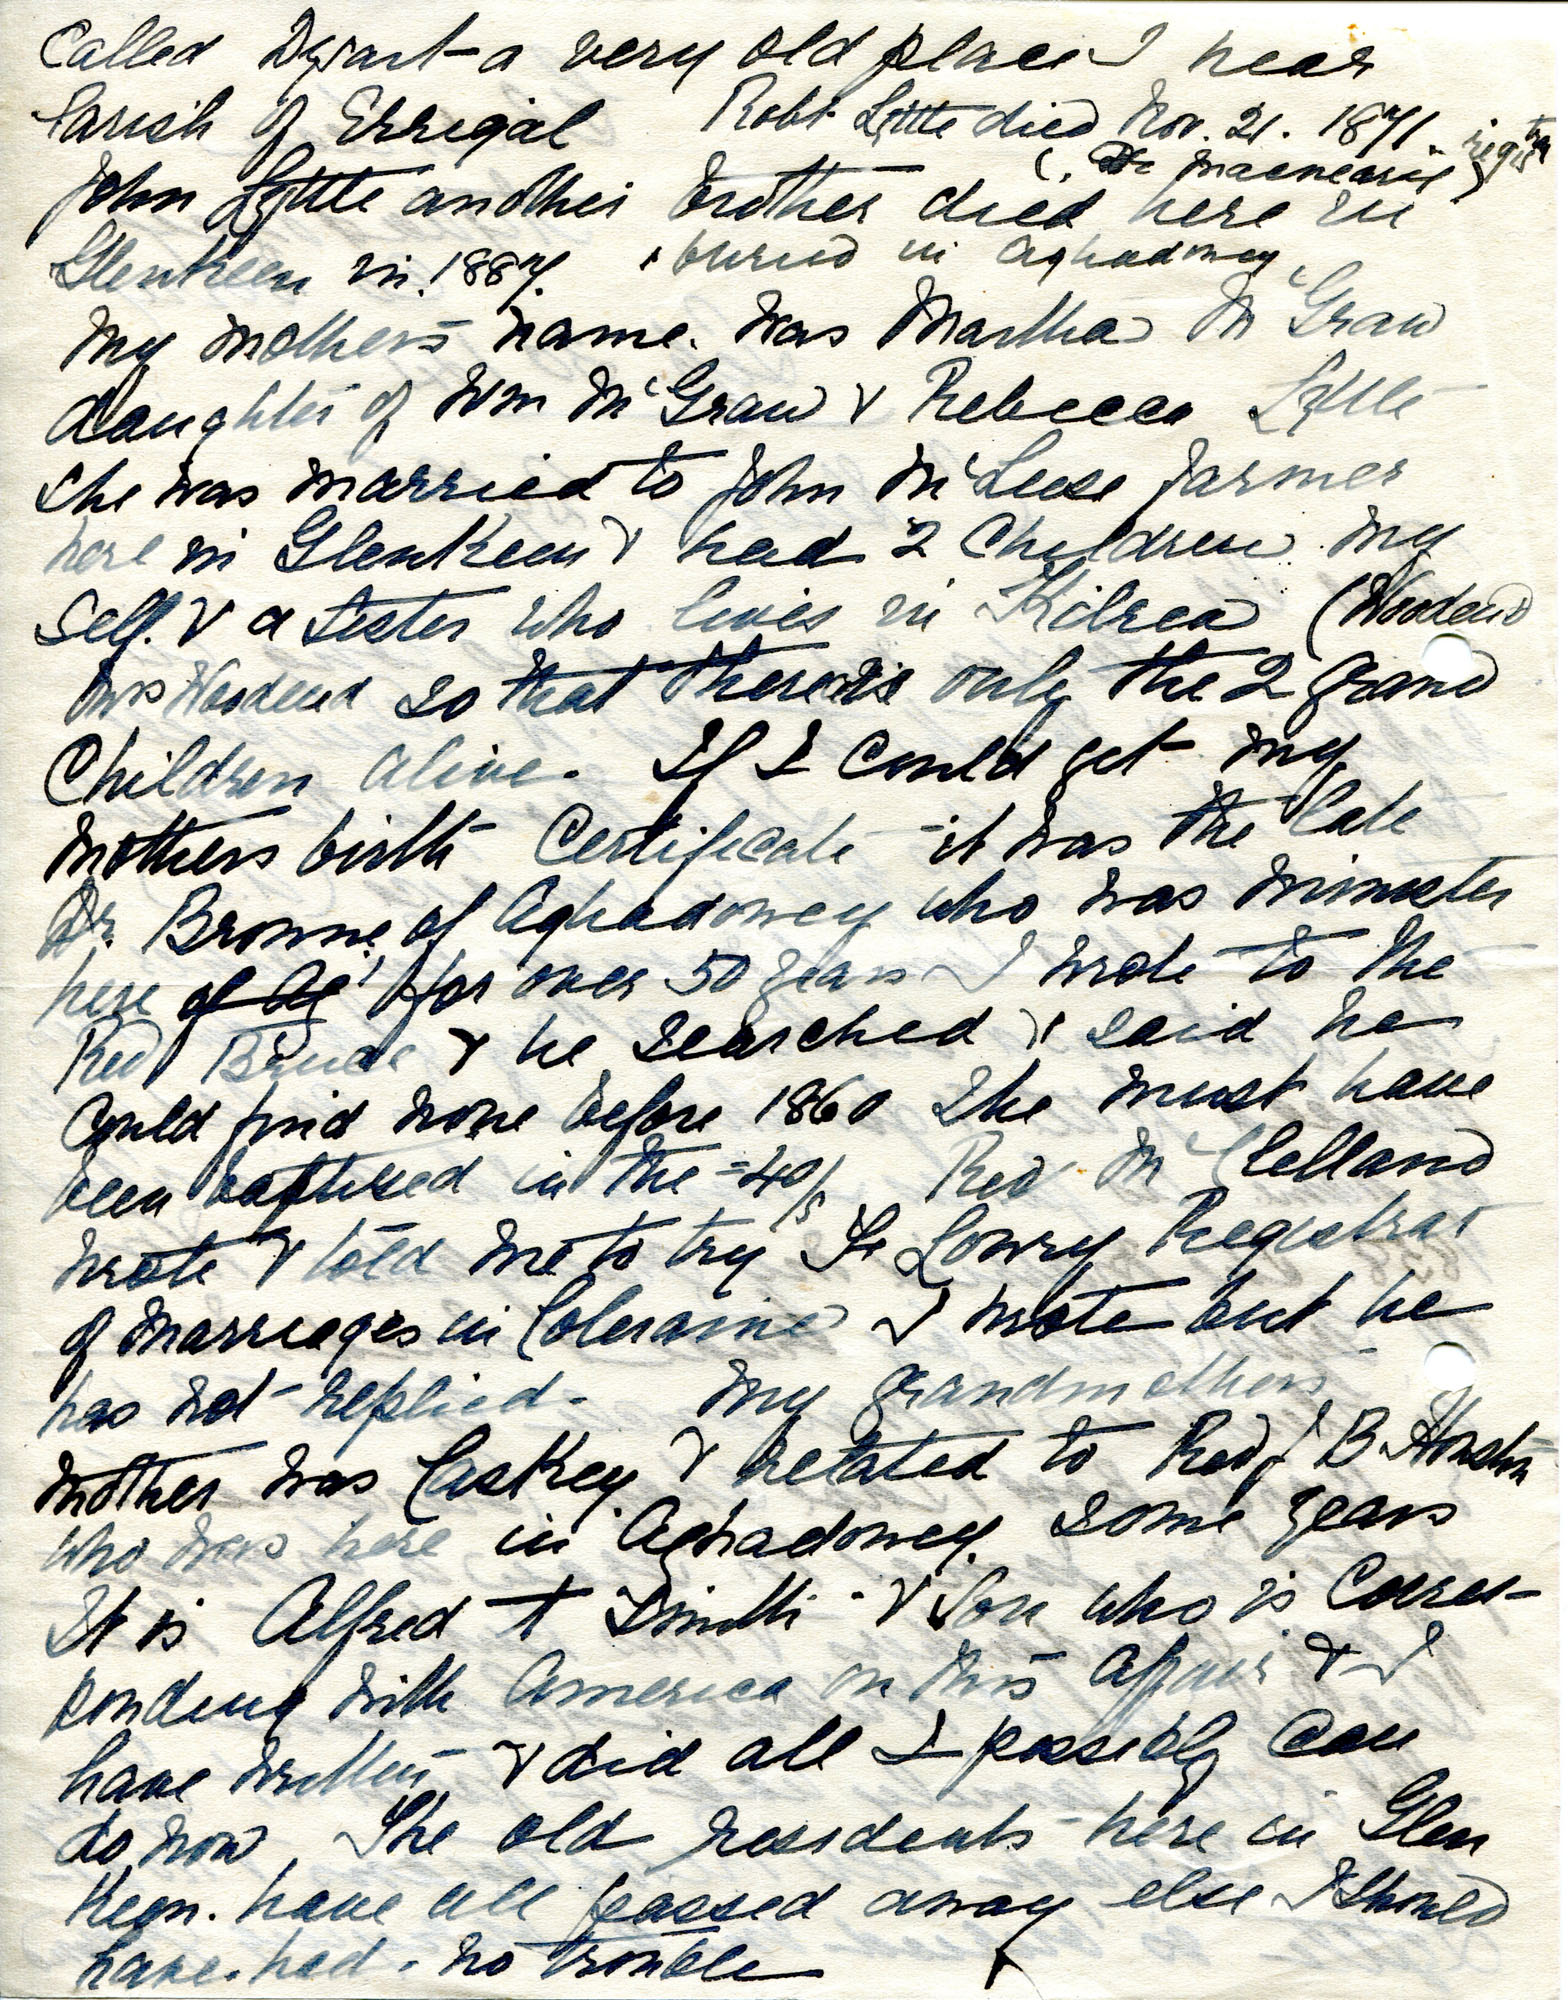 Called Dysart - a very old place I hear
Parish of Errigal Robt Lyttle died Nov. 21. 1871.
(. Macnearie) registra
John Lyttle another brother died here in
Glenkeen in. 1887. & buried in Aghadowey
My mother's name. was Martha McGraw
daughter of Wm McGraw & Rebecca Lyttle
She was married to John McLeese farmer
here in Glenkeen & had 2 Children my
Self. & a Sister who lives in Kilrea (Woodend
Mrs Woodend so that there is only the 2 grand
Children alive. If I Could get my
mothers birth Certificate - it was the late
Dr. Browne, of Aghadowey who was minister
here of Ag' for over 50 years I wrote to the
Rev Bruce & he searched & said he
Could find none before 1860 She must have
been baptised in the = 40/s Rev McClelland
wrote & told me to try Lowry Registrar
of marriages in Coleraine I wrote but he
has not replied. My grandmothers
mother was Caskey & related to Rev J B Huston
who was here in Aghadowey some years
It is Alfred T Smith & Son who is Corres-
ponding with America on this affair & I
have written & did all I possibly Can
do now. The old residents here in Glen
Keen. have all passed away else I should
have. had. no trouble